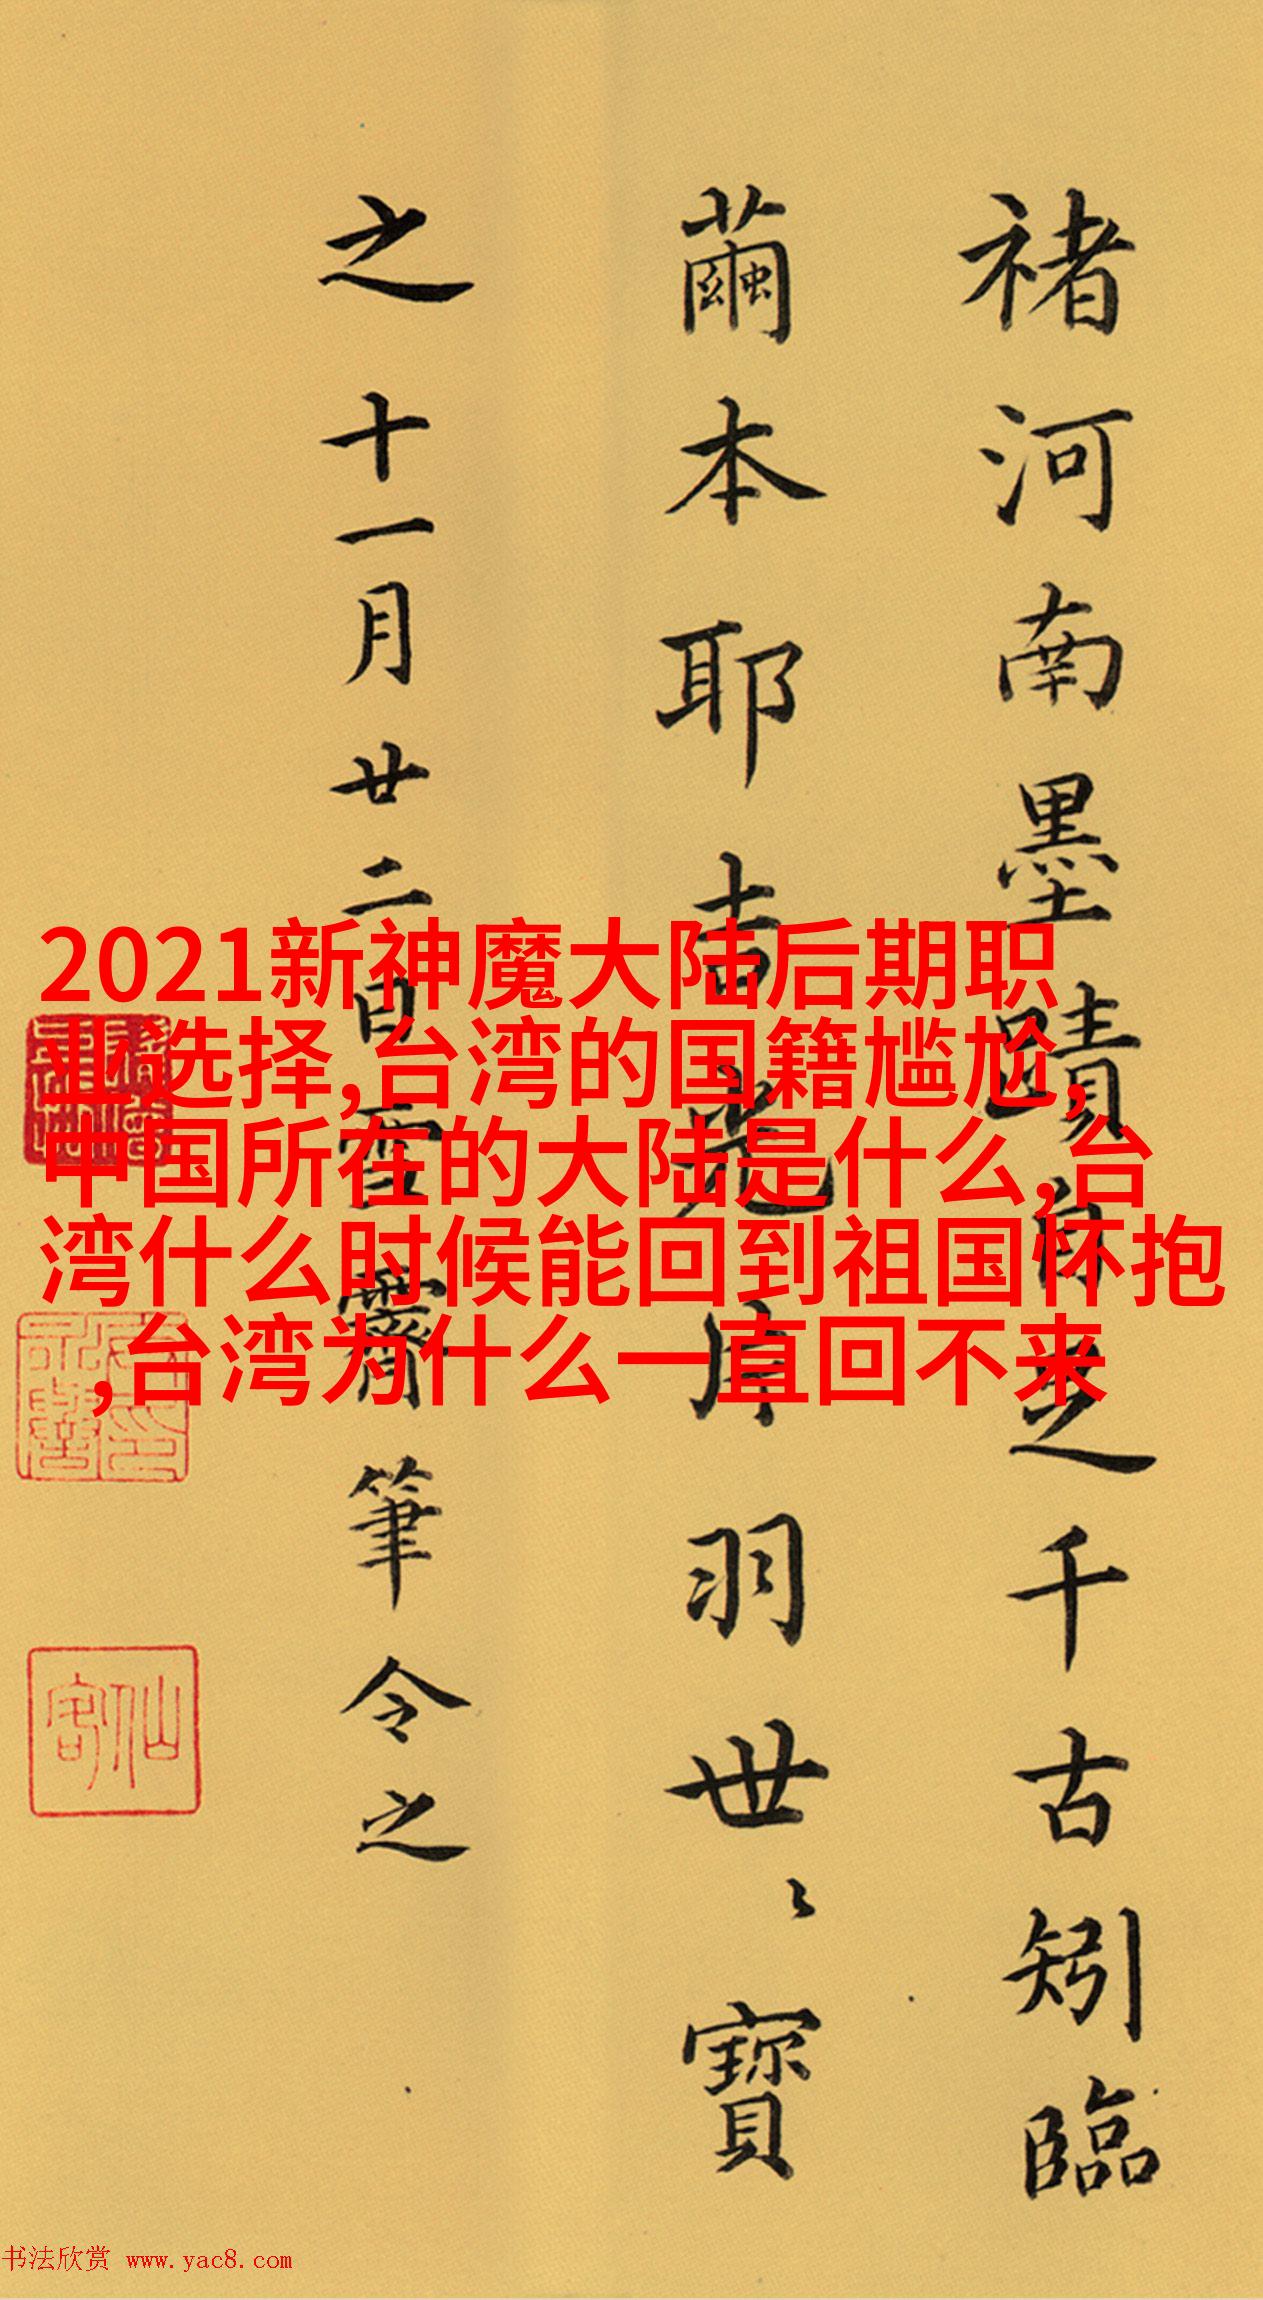 褚河南墨蹟自千古矧臨
繭本耶吉光片羽世〻寶
之十一月廿二日雪霽筆令之
2021新神魔大陆后期职
业选择,台湾的国籍尴尬,
中国所在的大陆是什么,台
湾什么时候能回到祖国怀抱
,台湾为什么一直回不来
仙客
书法欣赏 www.yac8.com